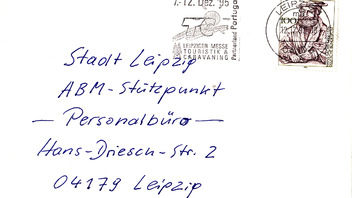 7.-12. Dez. '96
LEIPZIGER MESSE
TOURISTIK &
CARAVANING
Partnerland Portugal
LEIPZIG
100
Stadt Leipzig
ABM-Stützpunkt
— Personalbüro —
Hans-Driesch-Str. 2
04179 Leipzig